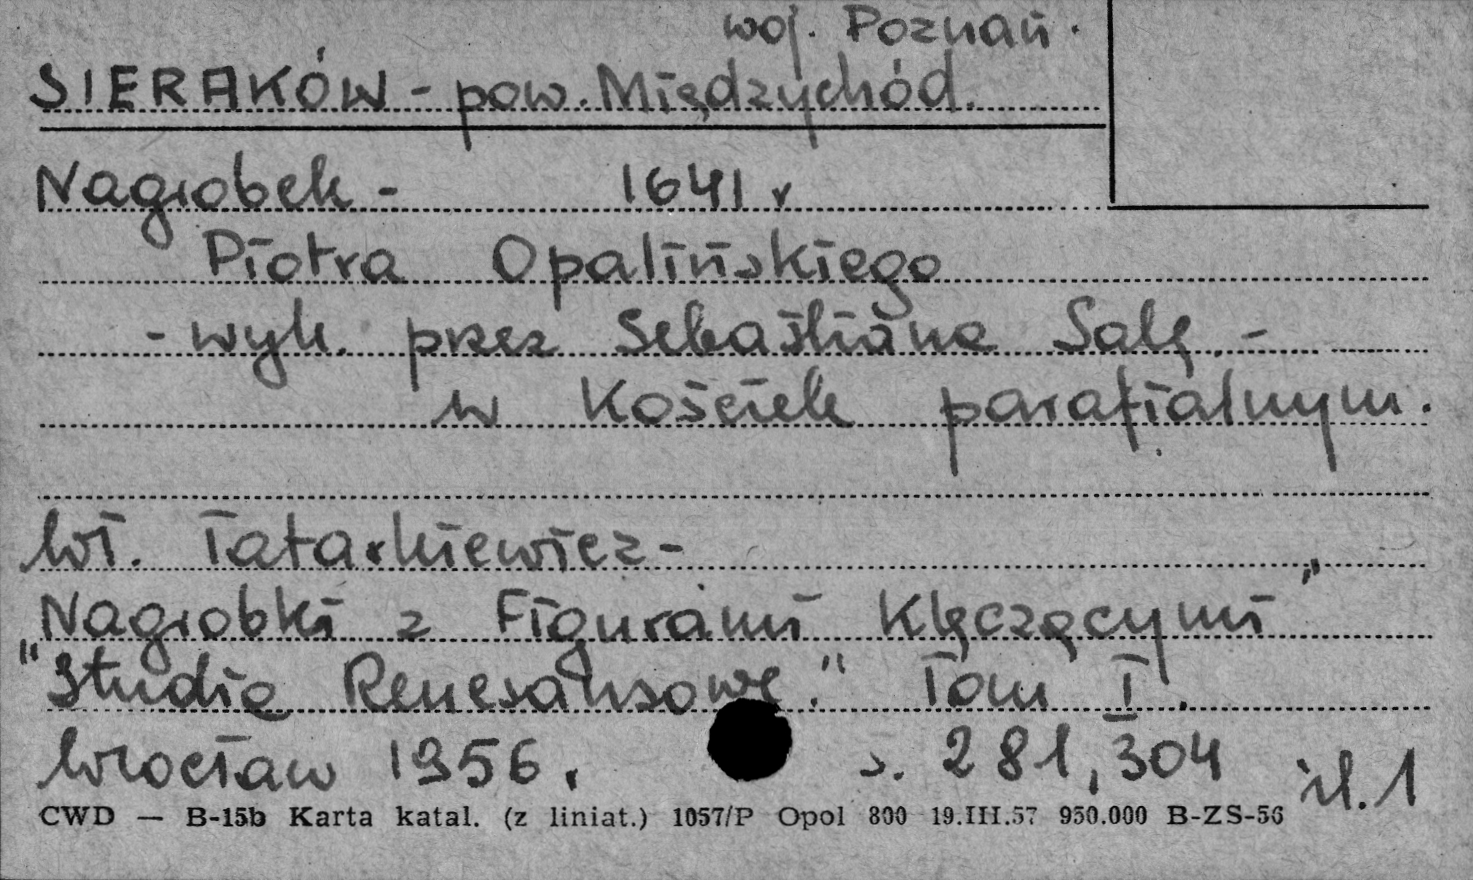 woj. Poznań.
SIERAKÓW - pow. Międzychód.
Nagrobek - 1641 r
Piotra Opalińskiego
- wyk. przez Sebastiana Salę. -
w Kościele parafialnym.
Wł. Tatarkiewicz -
"Nagrobki z Figurami Klęczącymi"
"Studia Renesansowe." Tom I.
Wrocław 1956. s. 281, 304 il. 1
CWD — B-15b Karta katal. (z liniat.) 1057/P Opol 800 19.III.57 950.000 B-ZS-56